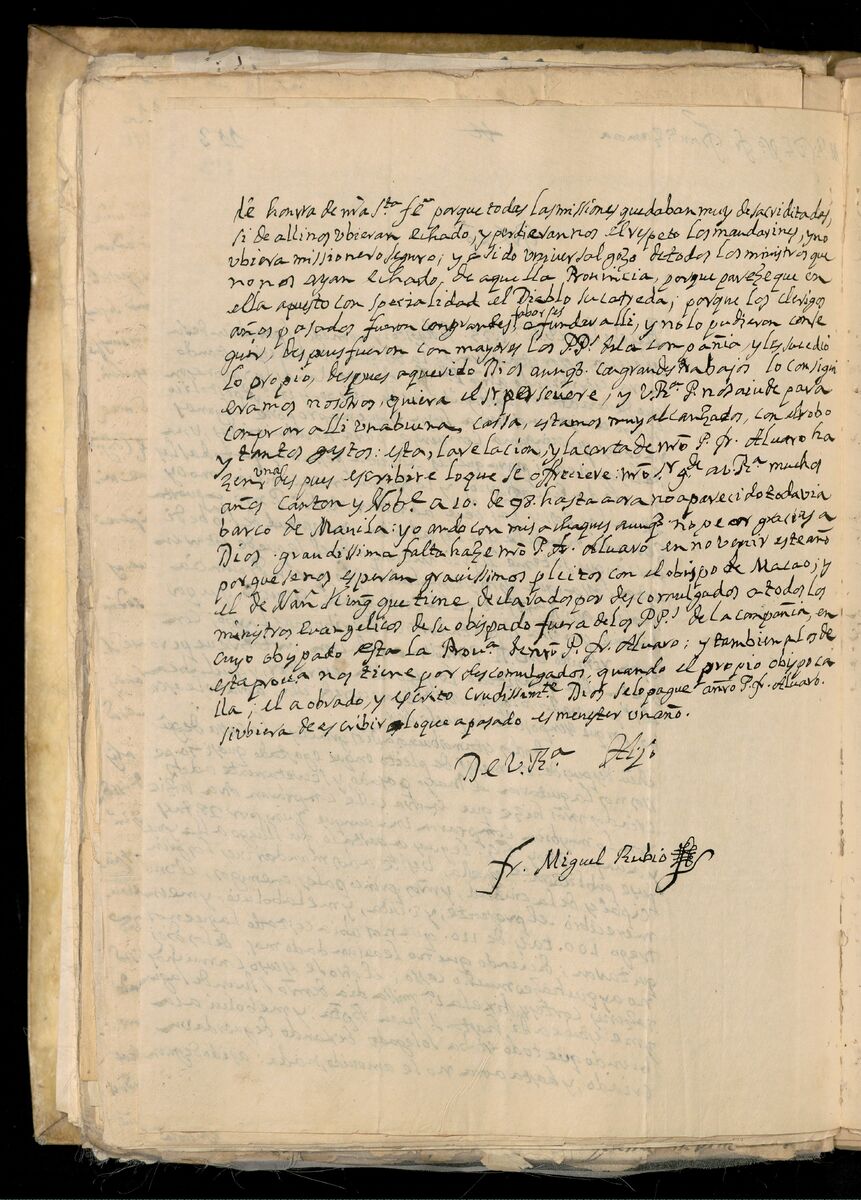 de honrra de nrã Stª fee porque todas las missiones quedaban muy desacriditadas,
si de alli nos ubieran echado, y perdieran nos el respeto los mandarines, y no
ubiera missionero seguro; y a sido universal gozo de todos los ministros que
no nos ayan echado, de aquella Provincia, porque pareze que en
ella a puesto con specialidad el Diablo su catreda; porque los clerigos
años pasados fueron con grandes faborses a fundar alli, y no lo pudieron conse
guir; despues fueron con mayores los PPs de la compañia y les sucedio
lo propio, despues a querido Dios aunqe con grandes trabajos lo consigui
eramos nosotros, quiera el Sr persevere; y V. Rª P. nos aiude para
comprar alli una buena cassa, estamos muy alcanzados, con el robo
y tantos gastos: esta, la relacion, y la carta de nrõ P. fr. Alvaro ha
zen una despues escribire lo que se offreciere: nrõ Sr gde a V. Rª muchos
años Canton y Nobe a 10. de 98. hasta aora no a parecido todavia
barco de Manila: yo ando con mis achaques aunqe no peor gracias a
Dios. grandissima falta haze nrõ P. fr. Alvaro en no venir este año
porque se nos esperan gravissimos pleitos con el obispo de Macao; y
el de Nan King que tiene declarados por descomulgados a todos los
ministros evangelicos de su obispado fuera de los PPs de la compañia, en
cuyo obispado esta la Provª de nrõ P. fr. Alvaro; y tambien a los de
esta provª nos tiene por descomulgados, quando el propio obispo ca
lla; el a obrado, y escrito crudissimte Dios se lo pague a nrõ P. fr. Alvaro.
si ubiera de escribir lo que a pasado es menester un año.
De V. Rª Hijo
fr. Miguel Rubio